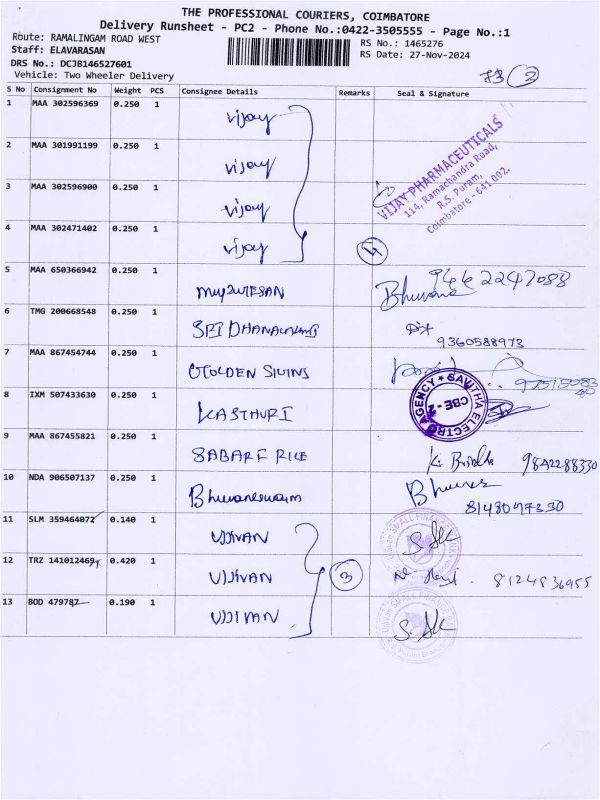 THE PROFESSIONAL COURIERS, COIMBATORE
Delivery Runsheet - PC2 - Phone No.:0422-3505555 - Page No.:1
Route: RAMALINGAM ROAD WEST
RS No.: 1465276
Staff: ELAVARASAN
RS Date: 27-Nov-2024
DRS No.: DCJB146527601
Vehicle: Two Wheeler Delivery
2
S No Consignment No Weight PCS Consignee Details Remarks Seal & Signature
1 MAA 302596369 0.250 1 vijay
2 MAA 301991199 0.250 1 vijay
3 MAA 302596900 0.250 1 vijay
VIJAY PHARMACEUTICALS
114, Ramachandra Road,
R.S. Puram,
Coimbatore - 641 002.
4 MAA 302471402 0.250 1 vijay 4
5 MAA 650366942 0.250 1 Bhuvana 9442247088
6 TMG 200668548 0.250 1 SRI DHANALAKSHMI
9360588973
7 MAA 867454744 0.250 1 GOLDEN
8 IXM 507433630 0.250 1 KASTHURI
SAVITHA ELECTRO AGENCY CBE - 2
9 MAA 867455821 0.250 1 SABARE RICE 9842288330
10 NDA 906507137 0.250 1 Bhuvaneswari
11 SLM 359464072 0.140 1 UJJIVAN
12 TRZ 141012469 0.420 1 UJJIVAN 3 8124836955
13 BOD 479787 0.190 1 UJJIVAN